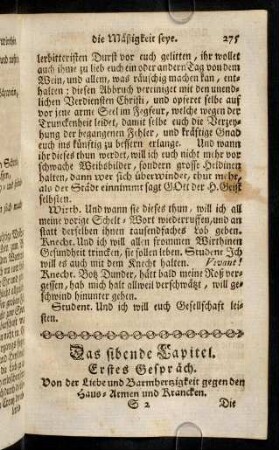 die Mäßigkeit seye. 275
lerbitteristen Durst vor euch gelitten, ihr wollet
auch ihme zu lieb euch ein oder andern Tag von dem
Wein, und allem, was räuschig machen kan, ent-
halten: disen Abbruch vereiniget mit den unend-
lichen Verdiensten Christi, und opferet selbe auf
vor jene arme Seel im Fegfeur, welche wegen der
Trunckenheit leidet, damit selbe euch die Verzey-
hung der begangenen Fehler, und kräftige Gnad
euch ins künftig zu bessern erlange. Und wann
ihr dieses thun werdet, will ich euch nicht mehr vor
schwache Weibsbilder, sondern grosse Heldinen
halten, dann wer sich überwindet, thut mehr,
als der Städe einnimmt sagt GOtt der H. Geist
selbsten.
Wirth. Und wann sie dieses thun, will ich all
meine vorige Schelt-Wort wiederruffen, und an
statt derselben ihnen tausendfaches Lob geben.
Knecht. Und ich will allen frommen Wirthinen
Gesundheit trincken, sie sollen leben. Student Ich
will es auch mit dem Knecht halten. Vivant!
Knecht. Botz Dunder, hätt bald meine Roß ver-
gessen, hab mich halt allweil verschwätzt, will ge-
schwind hinunter gehen.
Student. Und ich will euch Gesellschaft lei-
sten.
Das sibende Capitel.
Erstes Gespräch.
Von der Liebe und Barmhertzigkeit gegen den
Haus-Armen und Krancken.
S 2 Die